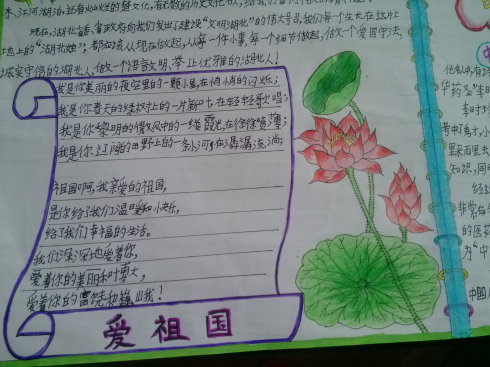 现在,湖北省委、省政府向我们发出了建设“文明湖北”的伟大号召,我们每个生长在这片土
地上的“湖北娃”,都应该从现在做起,从每一件小事,每一个细节做起,做一个爱国守法,
诚实守信的湖北人,做一个语言文明、举止优雅的湖北人!
我是你美丽的夜空里的一颗小星,在悄悄的闪烁;
我是你春天的绿树上的一片新叶,在轻轻歌唱;
我是你黎明的微风中的一缕霞光,在徐徐喷薄;
我是你辽阔的田野上的一条小河,在潺潺流淌;
祖国啊,我亲爱的祖国,
是你给了我们温暖和快乐,
给了我们幸福的生活。
我们深深地爱着您,
爱着你的美丽和博大,
爱着你的富饶和巍峨!
爱祖国
华药
李时
知识,同
经
非常
的医药
为“中
中国